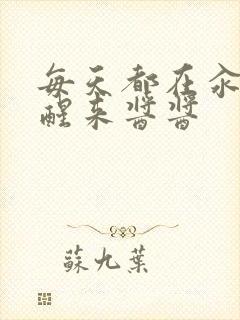 每天都在
醒来醬醬
蘇九葉